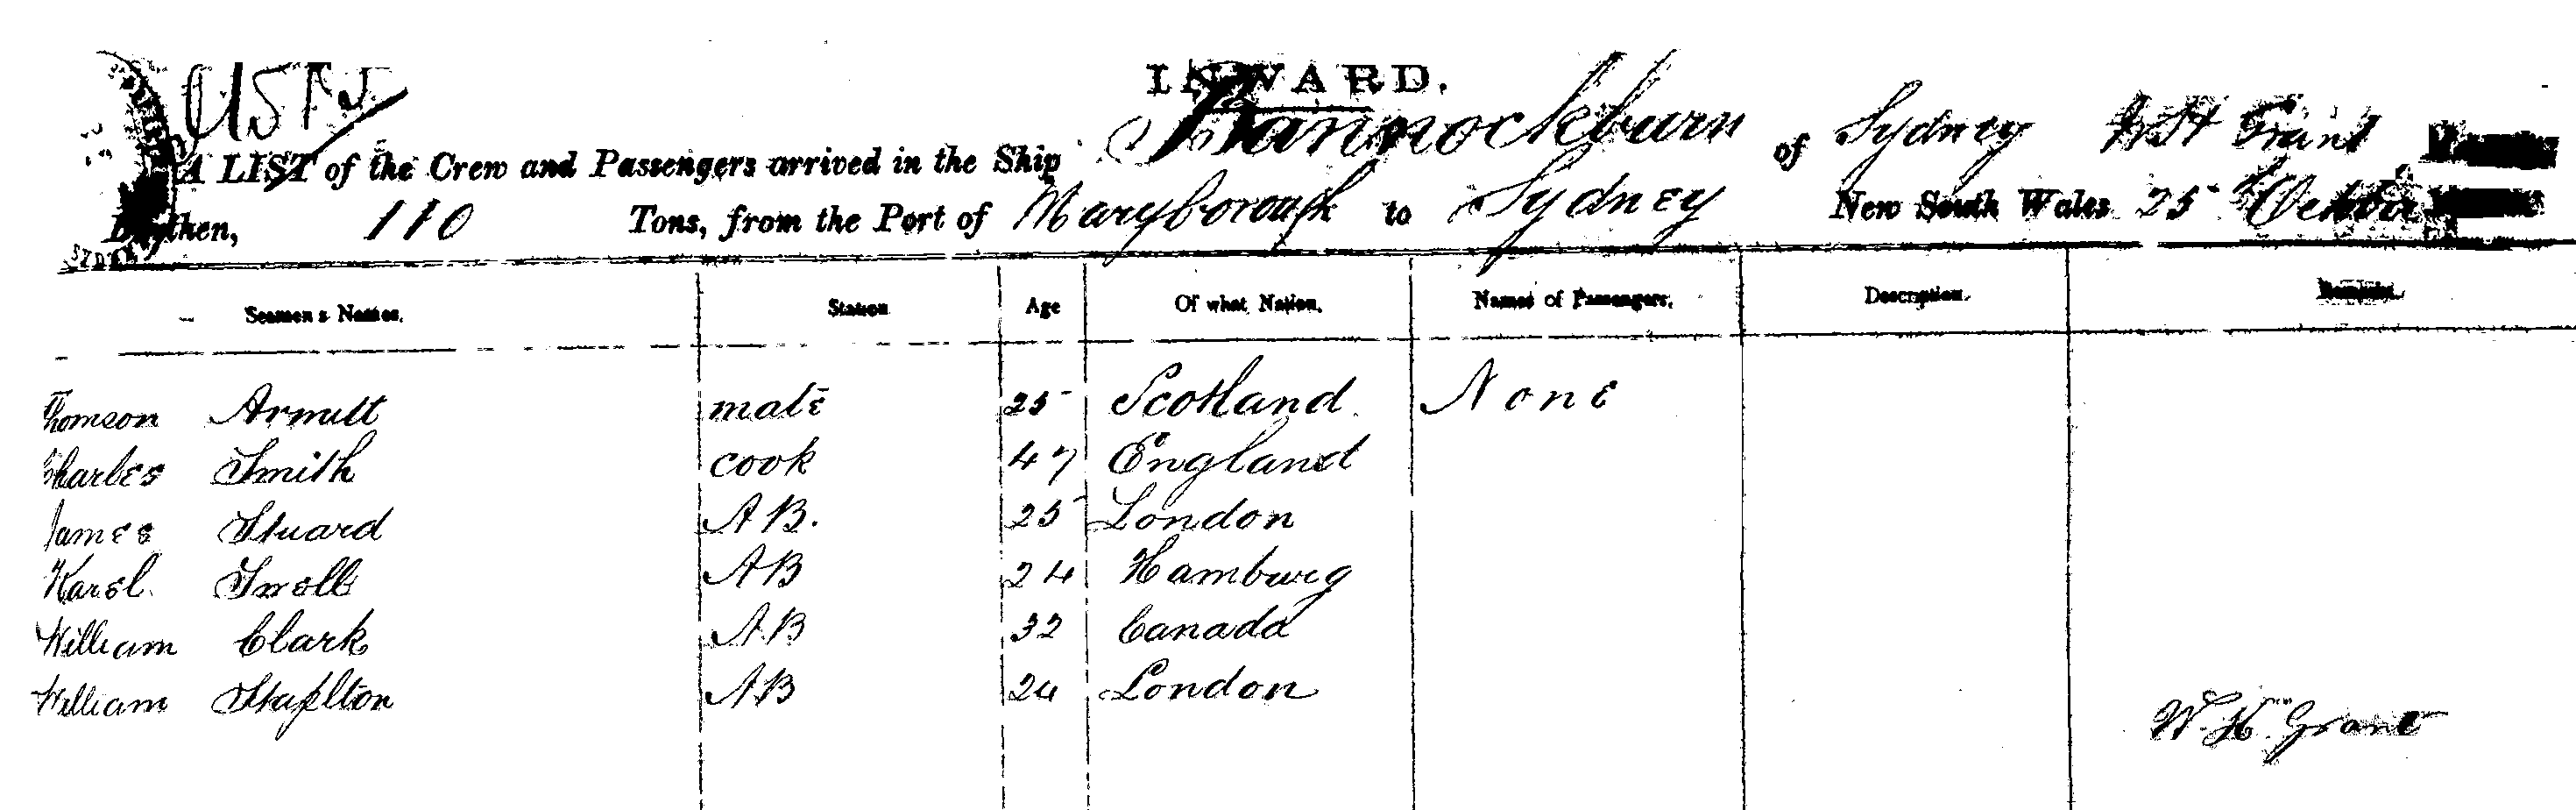 INWARD.
A LIST of the Crew and Passengers arrived in the Ship Bannockburn of Sydney W H Grant
Burthen, 110 Tons, from the Port of Maryborough to Sydney New South Wales 25 October
Seamen's Names. Station Age Of what Nation. Names of Passengers. Description. Remarks.
Thomson Armitt mate 25 Scotland None
Charles Smith cook 47 England
James Stuard AB. 25 London
Karel Snell AB 24 Hamburg
William Clark AB 32 Canada
William Staplton AB 24 London
W. H. Grant